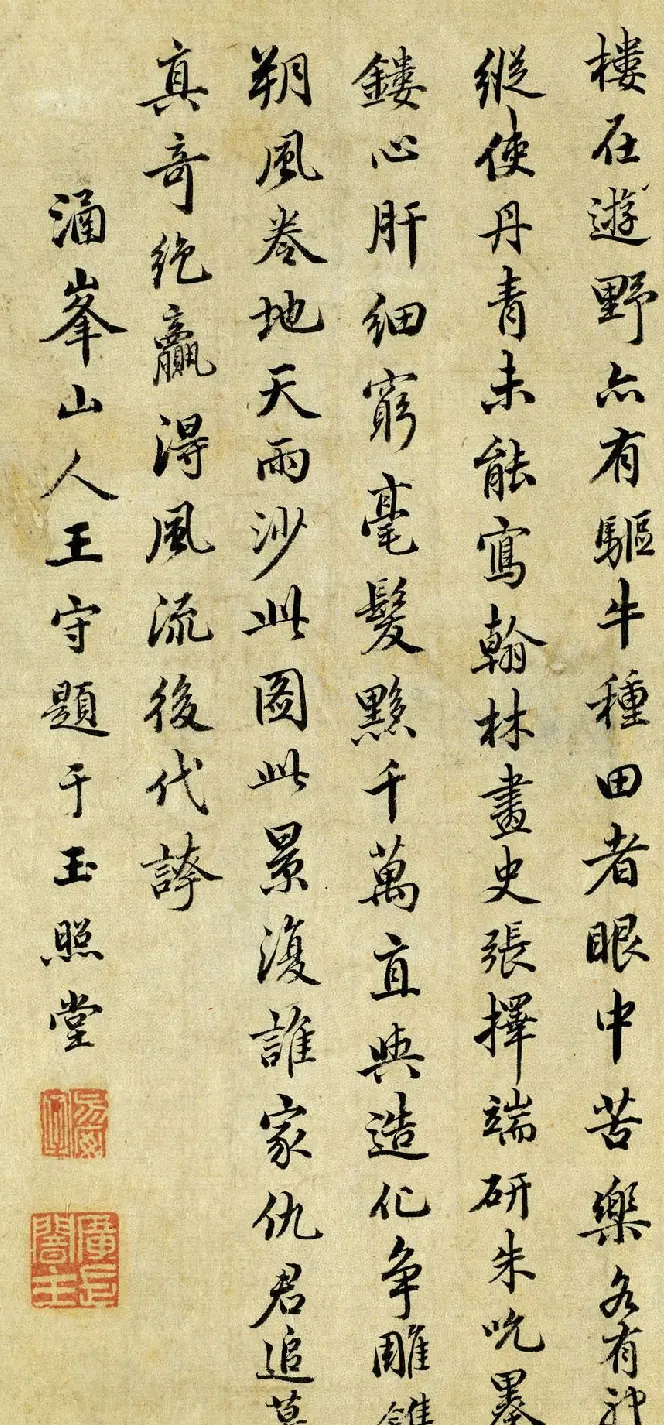 樓在遊野亦有驅牛種田者眼中苦樂各有
縱使丹青未能寫翰林畫史張擇端研朱吮墨
鏤心肝細窮毫髮夥千萬直與造化爭雕鎪
朔風卷地天雨沙此圖此景復誰家仇君追摹
真奇絕贏得風流後代誇
涵峯山人王守題于玉照堂
廣長闇主